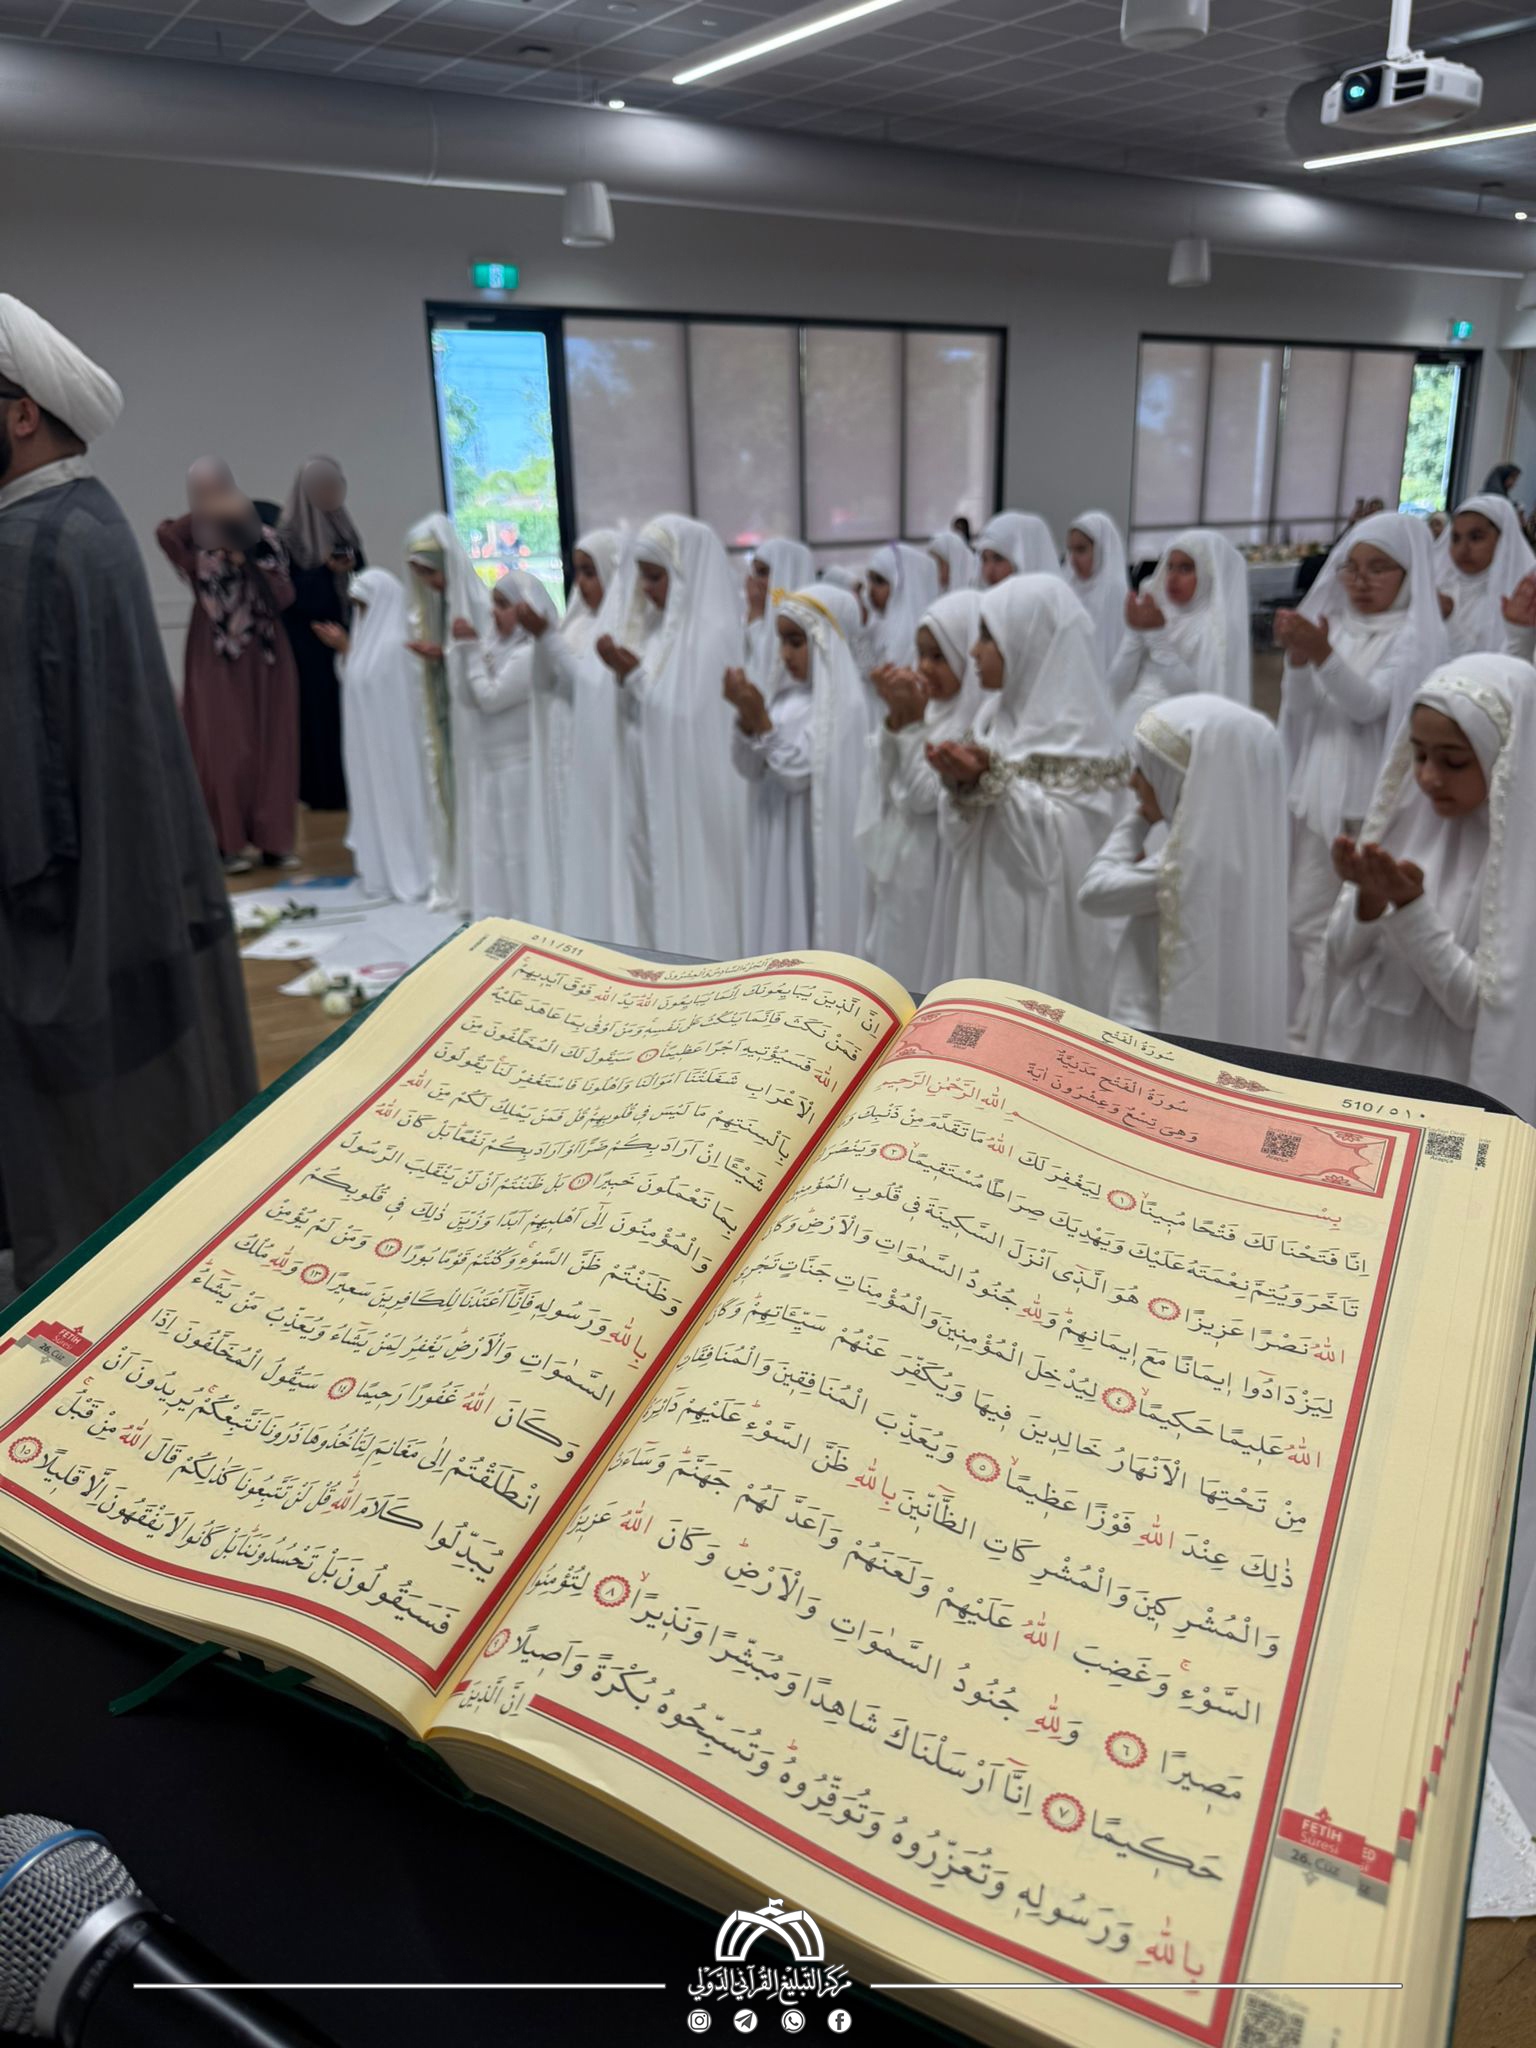 سُورَةُ الْفَتْحِ
510/٥١٠
سُورَةُ الْفَتْحِ مَدَنِيَّةٌ
وَهِىَ تِسْعٌ وَعِشْرُونَ اٰيَةً
بِسْمِ اللّٰهِ الرَّحْمٰنِ الرَّحِيمِ
اِنَّا فَتَحْنَا لَكَ فَتْحًا مُبِينًا ١ لِيَغْفِرَ لَكَ اللّٰهُ مَا تَقَدَّمَ مِنْ ذَنْبِكَ
تَاَخَّرَ وَيُتِمَّ نِعْمَتَهُ عَلَيْكَ وَيَهْدِيَكَ صِرَاطًا مُسْتَقِيمًا ٢ وَيَنْصُرَكَ
اللّٰهُ نَصْرًا عَزِيزًا ٣ هُوَ الَّذِى اَنْزَلَ السَّكِينَةَ فِى قُلُوبِ الْمُؤْمِنِينَ
لِيَزْدَادُوا اِيمَانًا مَعَ اِيمَانِهِمْ وَلِلّٰهِ جُنُودُ السَّمٰوَاتِ وَالْاَرْضِ وَكَانَ
اللّٰهُ عَلِيمًا حَكِيمًا ٤ لِيُدْخِلَ الْمُؤْمِنِينَ وَالْمُؤْمِنَاتِ جَنَّاتٍ تَجْرِى
مِنْ تَحْتِهَا الْاَنْهَارُ خَالِدِينَ فِيهَا وَيُكَفِّرَ عَنْهُمْ سَيِّـَٔاتِهِمْ وَكَانَ
ذٰلِكَ عِنْدَ اللّٰهِ فَوْزًا عَظِيمًا ٥ وَيُعَذِّبَ الْمُنَافِقِينَ وَالْمُنَافِقَاتِ
وَالْمُشْرِكِينَ وَالْمُشْرِكَاتِ الظَّٓانِّينَ بِاللّٰهِ ظَنَّ السَّوْءِ عَلَيْهِمْ دَٓائِرَةُ
السَّوْءِ وَغَضِبَ اللّٰهُ عَلَيْهِمْ وَلَعَنَهُمْ وَاَعَدَّ لَهُمْ جَهَنَّمَ وَسَٓاءَتْ
مَصِيرًا ٦ وَلِلّٰهِ جُنُودُ السَّمٰوَاتِ وَالْاَرْضِ وَكَانَ اللّٰهُ عَزِيزًا
حَكِيمًا ٧ اِنَّٓا اَرْسَلْنَاكَ شَاهِدًا وَمُبَشِّرًا وَنَذِيرًا ٨ لِتُؤْمِنُوا
بِاللّٰهِ وَرَسُولِهِ وَتُعَزِّرُوهُ وَتُوَقِّرُوهُ وَتُسَبِّحُوهُ بُكْرَةً وَاَصِيلًا ٩
اِنَّ الَّذِينَ
FETİH
Suresi
26. Cüz
٥١١/511
اَلْجُزْءُ السَّادِسُ وَالْعِشْرُونَ
اِنَّ الَّذِينَ يُبَايِعُونَكَ اِنَّمَا يُبَايِعُونَ اللّٰهَ يَدُ اللّٰهِ فَوْقَ اَيْدِيهِمْ
فَمَنْ نَكَثَ فَاِنَّمَا يَنْكُثُ عَلٰى نَفْسِهِ وَمَنْ اَوْفٰى بِمَا عَاهَدَ عَلَيْهُ
اللّٰهَ فَسَيُؤْتِيهِ اَجْرًا عَظِيمًا ١٠ سَيَقُولُ لَكَ الْمُخَلَّفُونَ مِنَ
الْاَعْرَابِ شَغَلَتْنَٓا اَمْوَالُنَا وَاَهْلُونَا فَاسْتَغْفِرْ لَنَا يَقُولُونَ
بِاَلْسِنَتِهِمْ مَا لَيْسَ فِى قُلُوبِهِمْ قُلْ فَمَنْ يَمْلِكُ لَكُمْ مِنَ اللّٰهِ
شَيْـًٔا اِنْ اَرَادَ بِكُمْ ضَرًّا اَوْ اَرَادَ بِكُمْ نَفْعًا بَلْ كَانَ اللّٰهُ
بِمَا تَعْمَلُونَ خَبِيرًا ١١ بَلْ ظَنَنْتُمْ اَنْ لَنْ يَنْقَلِبَ الرَّسُولُ
وَالْمُؤْمِنُونَ اِلٰٓى اَهْلِيهِمْ اَبَدًا وَزُيِّنَ ذٰلِكَ فِى قُلُوبِكُمْ
وَظَنَنْتُمْ ظَنَّ السَّوْءِ وَكُنْتُمْ قَوْمًا بُورًا ١٢ وَمَنْ لَمْ يُؤْمِنْ
بِاللّٰهِ وَرَسُولِهِ فَاِنَّٓا اَعْتَدْنَا لِلْكَافِرِينَ سَعِيرًا ١٣ وَلِلّٰهِ مُلْكُ
السَّمٰوَاتِ وَالْاَرْضِ يَغْفِرُ لِمَنْ يَشَٓاءُ وَيُعَذِّبُ مَنْ يَشَٓاءُ
وَكَانَ اللّٰهُ غَفُورًا رَحِيمًا ١٤ سَيَقُولُ الْمُخَلَّفُونَ اِذَا
انْطَلَقْتُمْ اِلٰى مَغَانِمَ لِتَأْخُذُوهَا ذَرُونَا نَتَّبِعْكُمْ يُرِيدُونَ اَنْ
يُبَدِّلُوا كَلَامَ اللّٰهِ قُلْ لَنْ تَتَّبِعُونَا كَذٰلِكُمْ قَالَ اللّٰهُ مِنْ قَبْلُ
فَسَيَقُولُونَ بَلْ تَحْسُدُونَنَا بَلْ كَانُوا لَا يَفْقَهُونَ اِلَّا قَلِيلًا ١٥
FETİH
Suresi
26. Cüz
مركز التبليغ القرآني الدولي